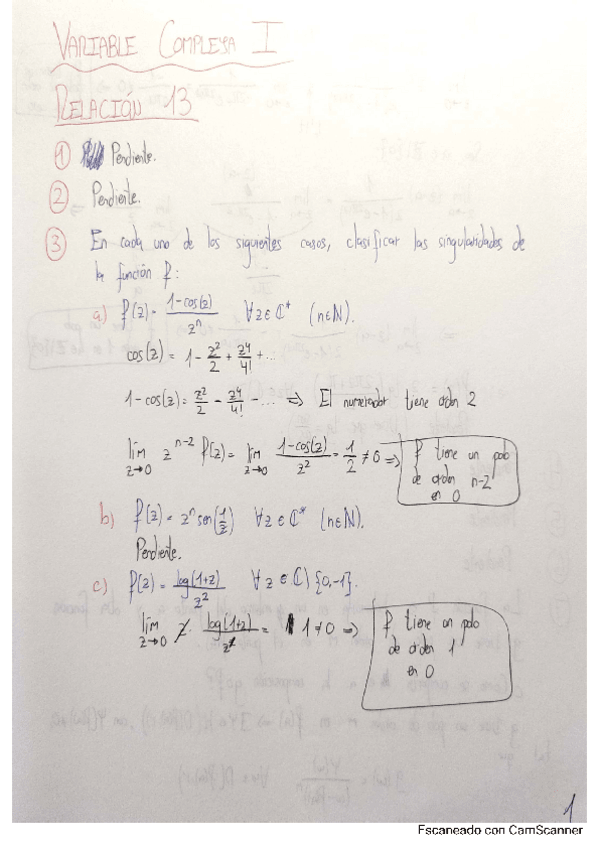 VARIABLE COMPLEJA I
RELACIÓN 13
① Pendiente.
② Pendiente.
③ En cada uno de los siguientes casos, clasificar las singularidades de
la función f:
a) f(z) = (1-cos(z))/zⁿ ∀z∈ℂ* (n∈ℕ).
cos(z) = 1 - z²/2 + z⁴/4! + ...
1-cos(z) = z²/2 - z⁴/4! - ... ⇒ El numerador tiene orden 2
lím z→0 zⁿ⁻² f(z) = lím z→0 (1-cos(z))/z² = 1/2 ≠ 0 ⇒ f tiene un polo
de orden n-2
en 0
b) f(z) = zⁿ sen(1/z) ∀z∈ℂ* (n∈ℕ).
Pendiente.
c) f(z) = log(1+z)/z² ∀z∈ℂ\{0,-1}.
lím z→0 z · log(1+z)/z² = 1 ≠ 0 ⇒ f tiene un polo
de orden 1
en 0
1
Escaneado con CamScanner